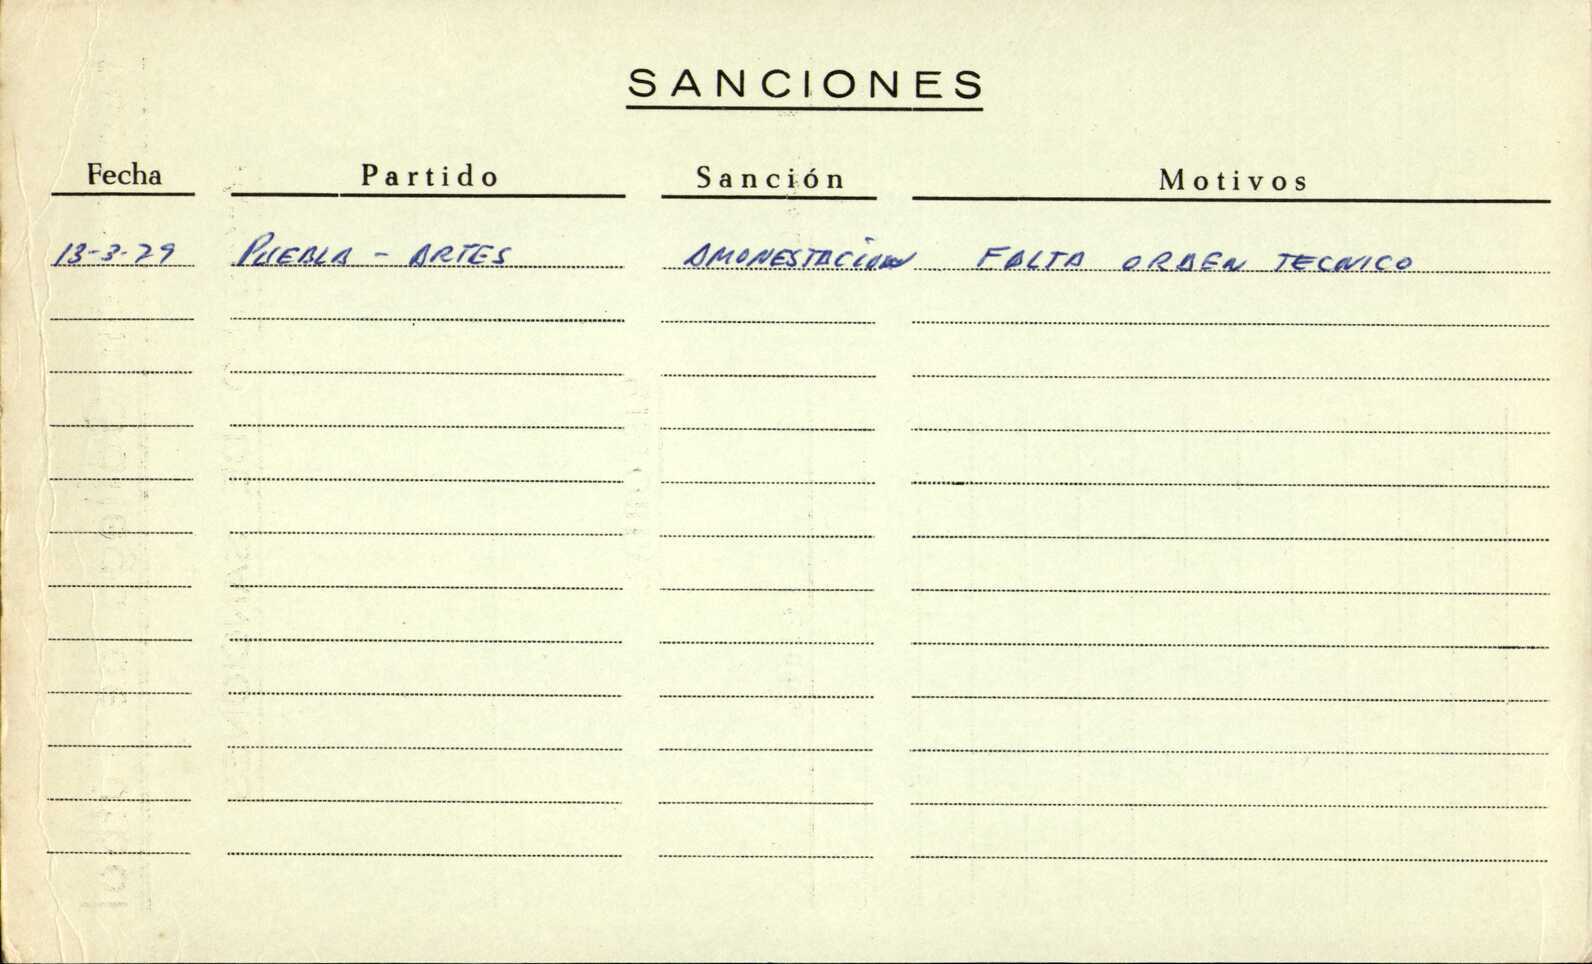 SANCIONES
Fecha Partido Sanción Motivos
13-3-79 PUEBLA - ARTES AMONESTACION FALTA ORDEN TECNICO